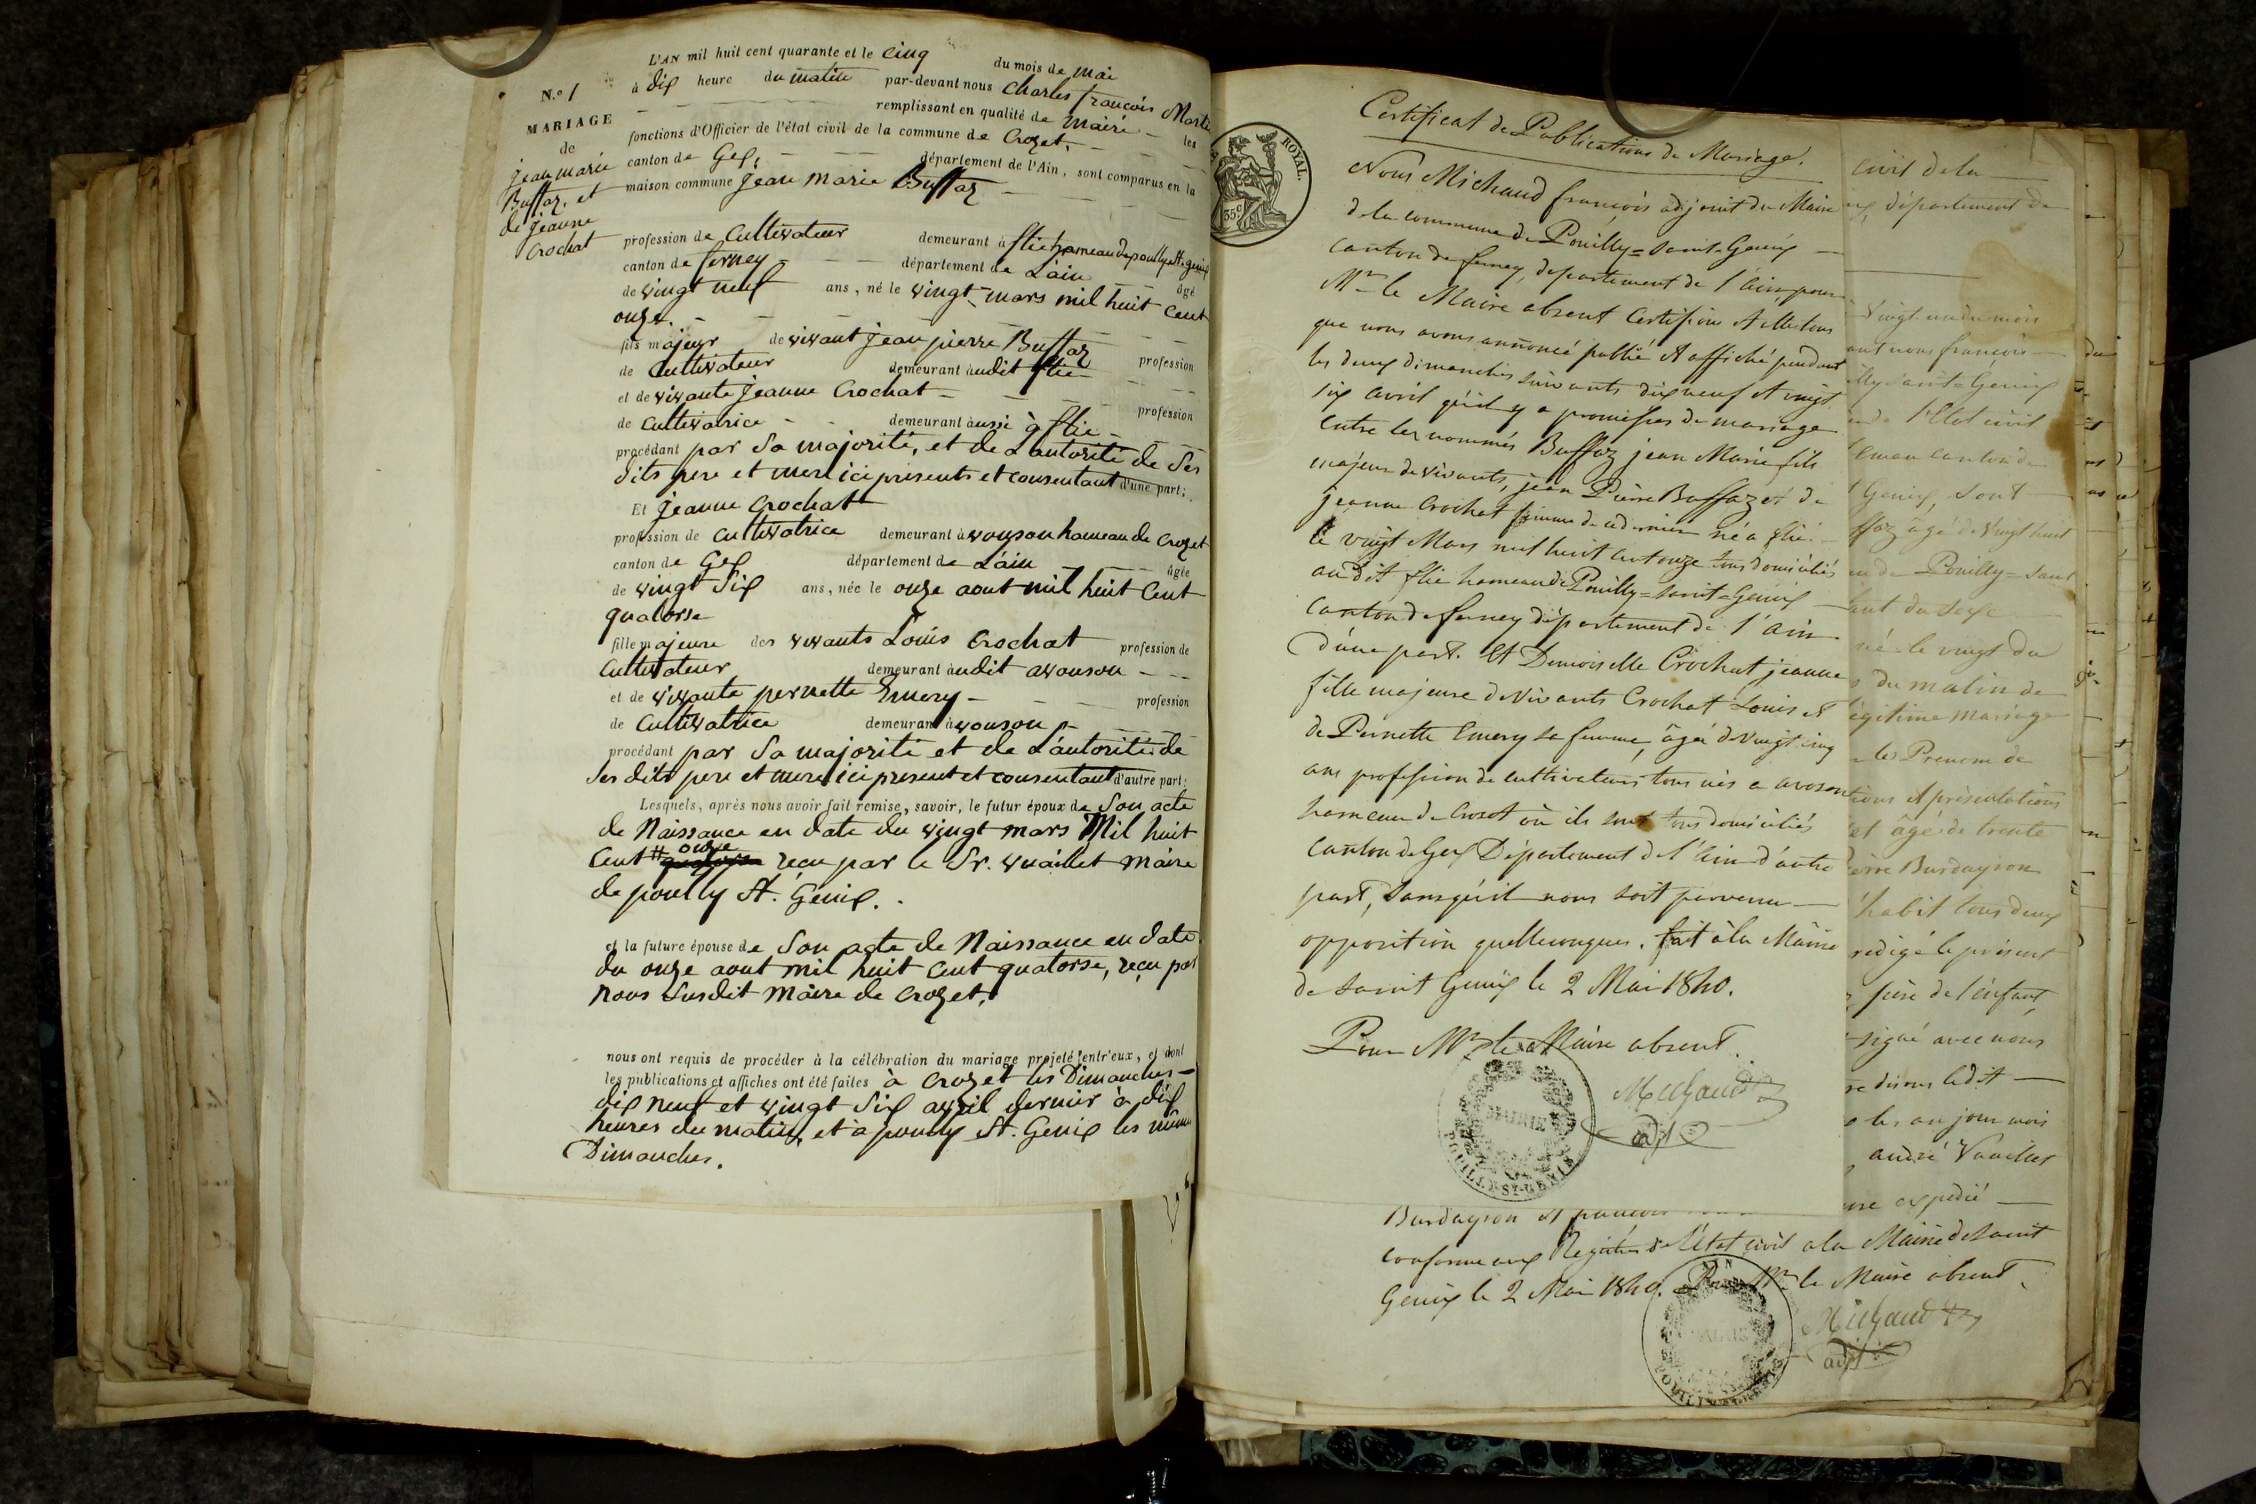 L'AN mil huit cent quarante et le cinq du mois de mai
à dix heure du matin par-devant nous Charles françois Marti
remplissant en qualité de maire les
fonctions d'Officier de l'état civil de la commune de Crozet,
canton de Gex, département de l'Ain, sont comparus en la
maison commune Jean Marie Buffaz
N.º 1
MARIAGE
de
jean marie
Buffaz, et
de jeanne
Crochat
profession de Cultivateur demeurant à flie hameau de pouilly st. genix
canton de ferney département de L'ain âgé
de vingt neuf ans, né le vingt mars mil huit cent
onze.
fils majeur de vivant jean pierre Buffaz profession
de Cultivateur demeurant audit flie
et de vivante jeanne Crochat profession
de cultivatrice demeurant aussi à flie
procédant par sa majorité, et de L'autorité de Ses
dits pere et mere ici présents et consentant d'une part;
Et jeanne Crochat
profession de cultivatrice demeurant à avouson hameau de Crozet
canton de Gex département de L'ain âgée
de vingt six ans, née le onze aout mil huit Cent
quatorse
fille majeure des vivants Louis Crochat profession de
Cultivateur demeurant audit avouson
et de vivante pernette Emery profession
de Cultivatrice demeurant avouson
procédant par sa majorité et de L'autorité de
Ses dits pere et mere ici present et consentant d'autre part:
Lesquels, après nous avoir fait remise, savoir, le futur époux de Son acte
de Naissance en date du vingt mars Mil huit
onze
Cent # quatorse reçu par le Sr. vuaillet maire
de pouilly St. Genix.
et la future épouse de Son acte de Naissance en date
du onze aout mil huit Cent quatorse, reçu par
nous Susdit maire de Crozet.
nous ont requis de procéder à la célébration du mariage projeté entr'eux, et dont
les publications et affiches ont été faites à Crozet les Dimanches
dix neuf et vingt Six avril dernier à dix
heures du matin, et à pouilly St. Genix les mêmes
Dimanches.
ROYAL.
35 c
Certificat de Publications de Mariage.
Nous Michaud françois adjoint du Maire
de la commune de Pouilly=saint-Genix
canton de ferney, département de l'ain, pour
Mr. le Maire absent Certifions Attestons
que nous avons annoncé publié et affiché pendant
les deux dimanches suivants dix neuf et vingt
six avril qu'il y a promesses de mariage
entre les nommés Buffaz jean Marie fils
majeur de vivants, jean Pierre Buffaz et de
jeanne Crochat femme de ce dernier né a flie
le vingt Mars mil huit cent onze tous domiciliés
au dit flie hameau de Pouilly=saint=Genix
canton de ferney département de l'ain
d'une part. Et Demoiselle Crochat jeanne
fille majeure de vivants Crochat Louis et
de Pernette Emery sa femme, âgée de vingt cinq
ans profession de cultivateurs tous nés a avoson
hameau de Crozet où ils sont tous domiciliés
Canton de Gex Département de l'Ain d'autre
part, sans qu'il nous soit parvenu
opposition quelleconques. fait à la Mairie
de saint Genix le 2 Mai 1840.
Pour Mr. le Maire absent.
Michaud
adjt
MAIRIE
POUILLY ST-GENIX
civil de la
département de
vingt un du mois
ant nous françois
illy saint=Genix
de l'Etat civil
canton de
Genix, sont
ffaz âgé de vingt huit
de Pouilly=saint
ant du sexe
né le vingt du
du matin de
légitime mariage
le Prenom de
tions et présentations
et âgé de trente
ierre Burdayron
habit tous deux
redigé le présent
père de l'enfant,
signé avec nous
les an jour mois
andré Vuaillet
expedié
Burdayron et francois
conforme aux Registres de l'état civil a la Mairie de saint
Genix le 2 Mai 1840. Pour Mr. le Maire absent.
Michaud
adjt
AIN
MAIRIE
POUILLY ST-GENIX